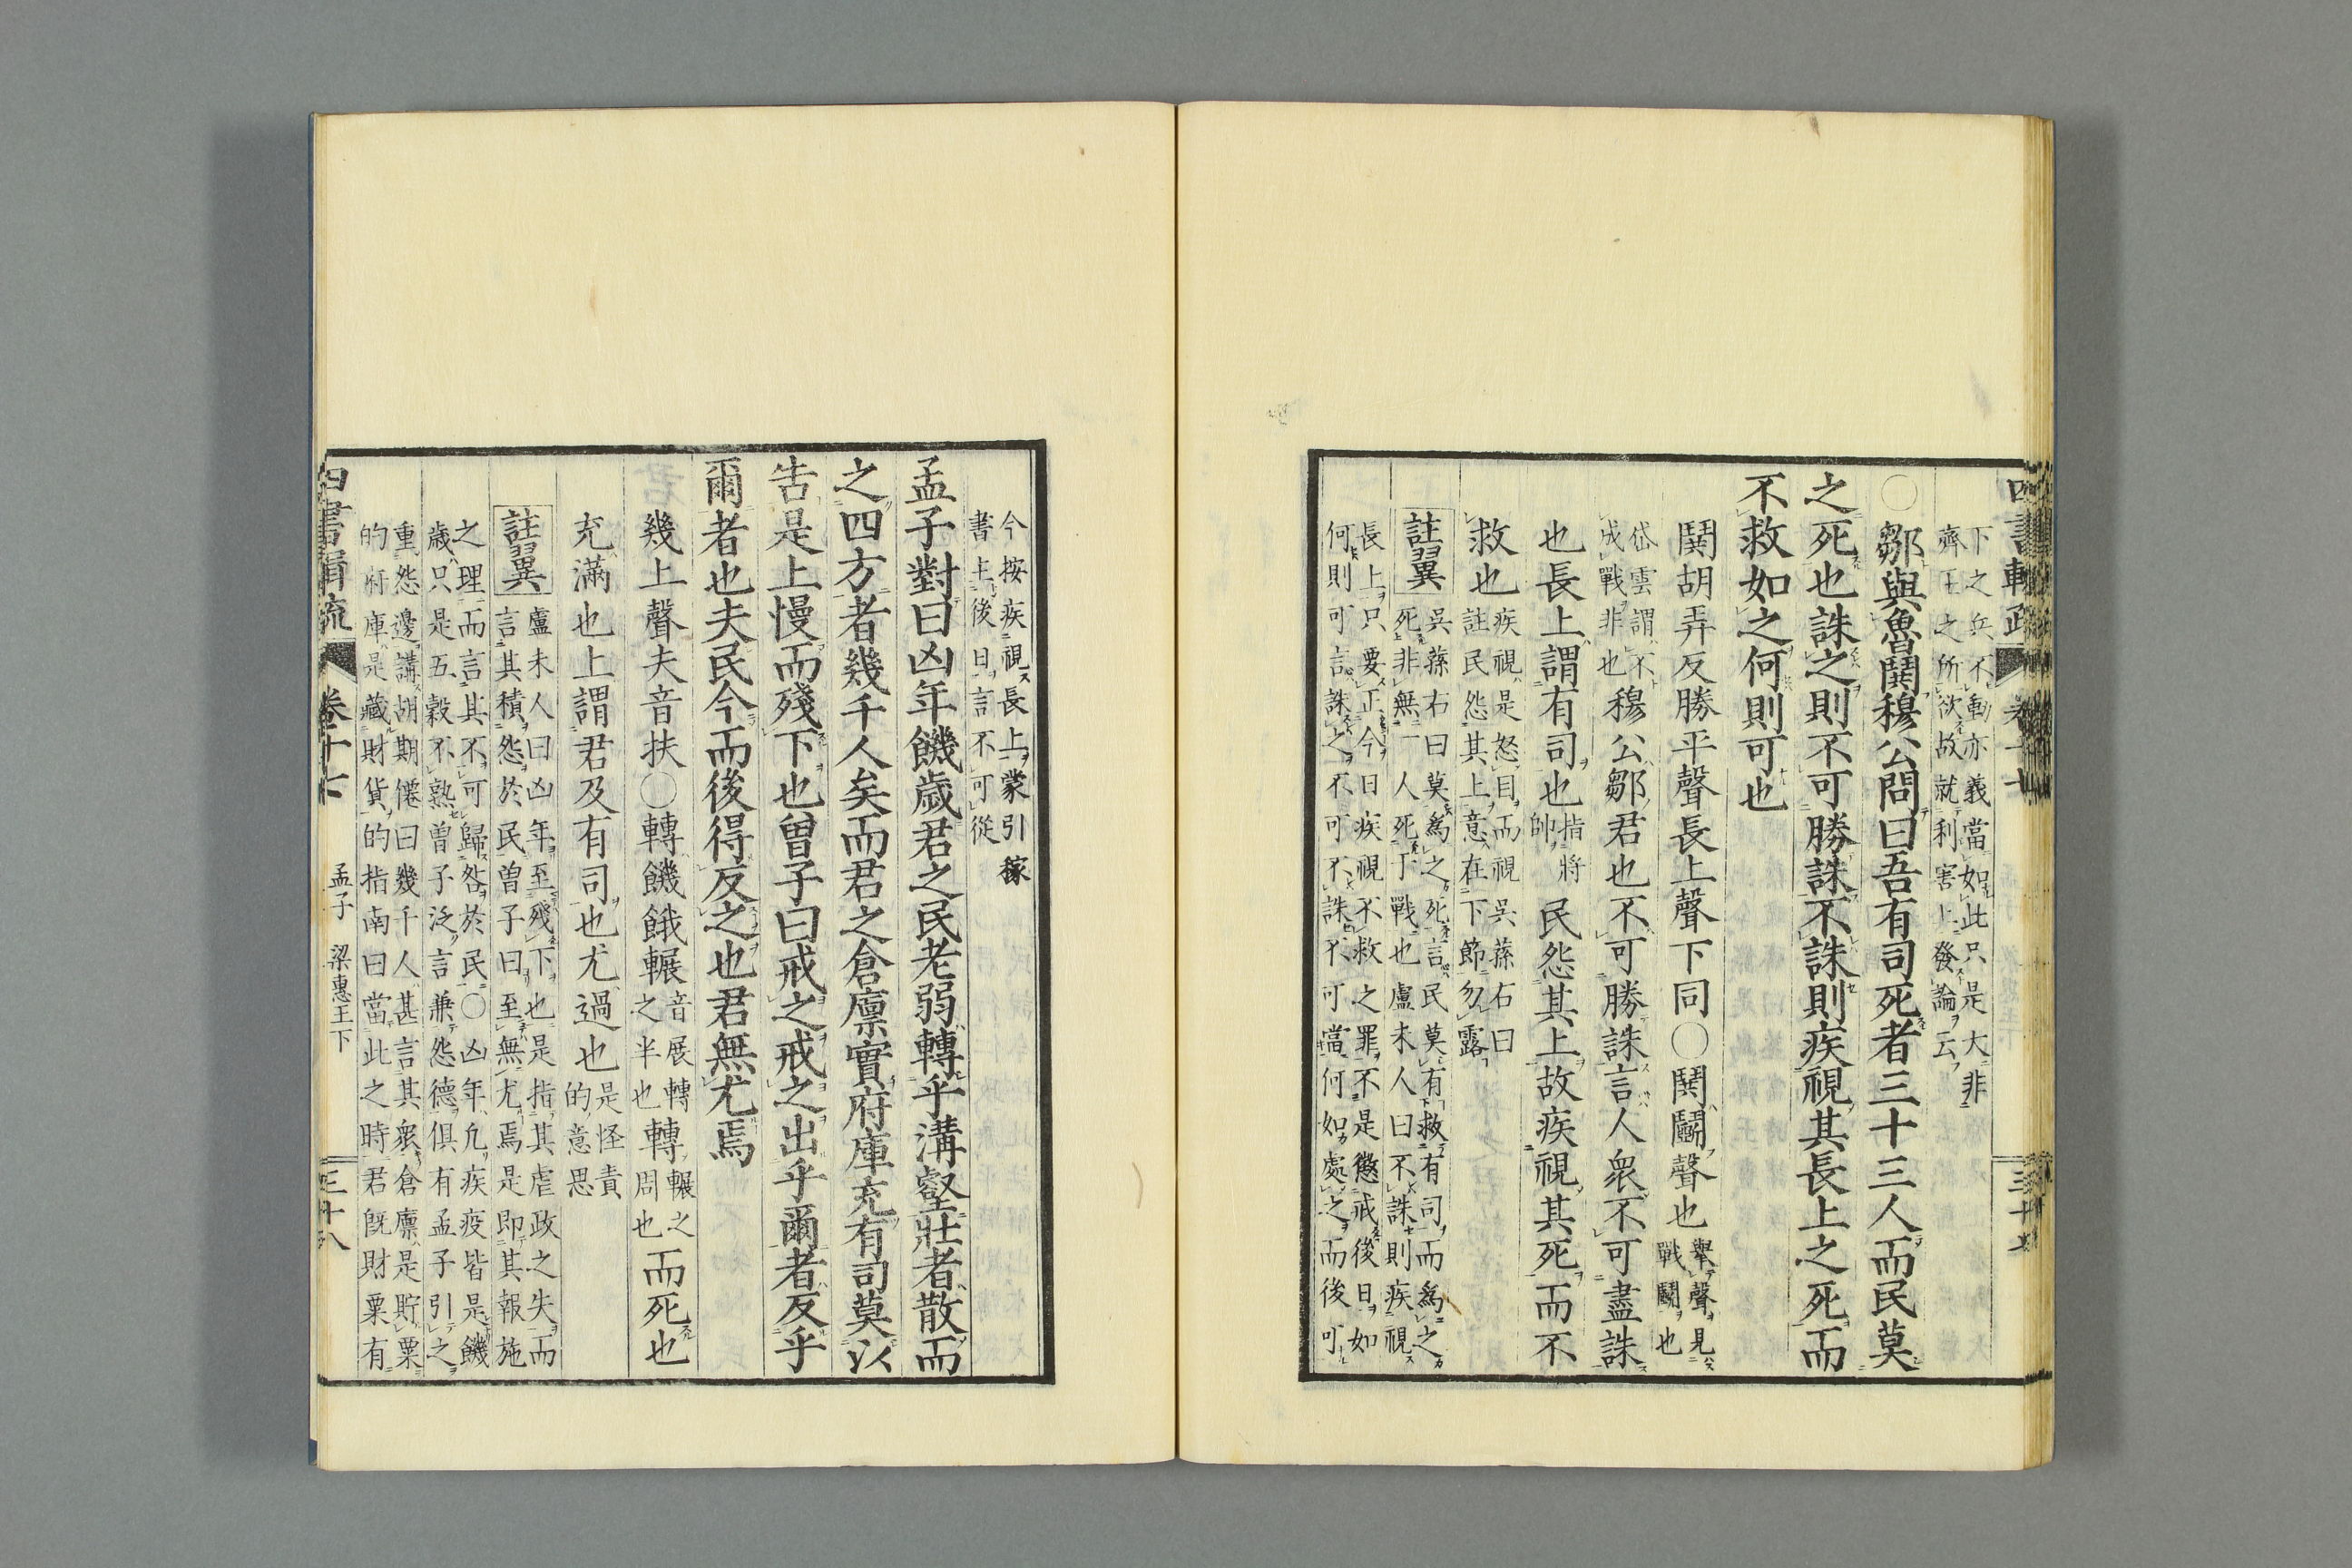 下之兵不動亦義當如此只是大非
齊王之所欲故就利害上發論云
○鄒與魯鬨穆公問曰吾有司死者三十三人而民莫
之死也誅之則不可勝誅不誅則疾視其長上之死而
不救如之何則可也
鬨胡弄反勝平聲長上聲下同○鬨鬬聲也
舉聲見
戰鬬也
岱雲謂不
成戰非也
穆公鄒君也不可勝誅言人衆不可盡誅
也長上謂有司也
指將
帥
民怨其上故疾視其死而不
救也
疾視是怒目而視吳蓀右曰
註民怨其上意在下節勿露
註翼
吳蓀右曰莫爲之死言民莫有救有司而爲之
死非無一人死于戰也盧未人曰不誅則疾視
長上只要正今日疾視不救之罪不是懲戒後日如
何則可言誅之不可不誅不可當何如處之而後可
四書輯疏
卷十七
三十七
今按疾視長上蒙引稼
書主後日言不可從
孟子對曰凶年饑歲君之民老弱轉乎溝壑壯者散而
之四方者幾千人矣而君之倉廩實府庫充有司莫以
告是上慢而殘下也曾子曰戒之戒之出乎爾者反乎
爾者也夫民今而後得反之也君無尤焉
幾上聲夫音扶○轉饑餓輾
音展轉
之半也
轉
輾之
周也
而死也
充滿也上謂君及有司也尤過也
是怪責
的意思
註翼
盧未人曰凶年至殘下也是指其虐政之失而
言其積怨於民曾子曰至無尤焉是即其報施
之理而言其不可歸咎於民○凶年凡疾疫皆是饑
歲只是五穀不熟曾子泛言兼怨德俱有孟子引之
重怨邊講胡期僊曰幾千人甚言其衆倉廩是貯粟
的府庫是藏財貨的指南曰當此之時君旣財粟有
四書輯疏
卷十七
孟子
梁惠王下
三十八